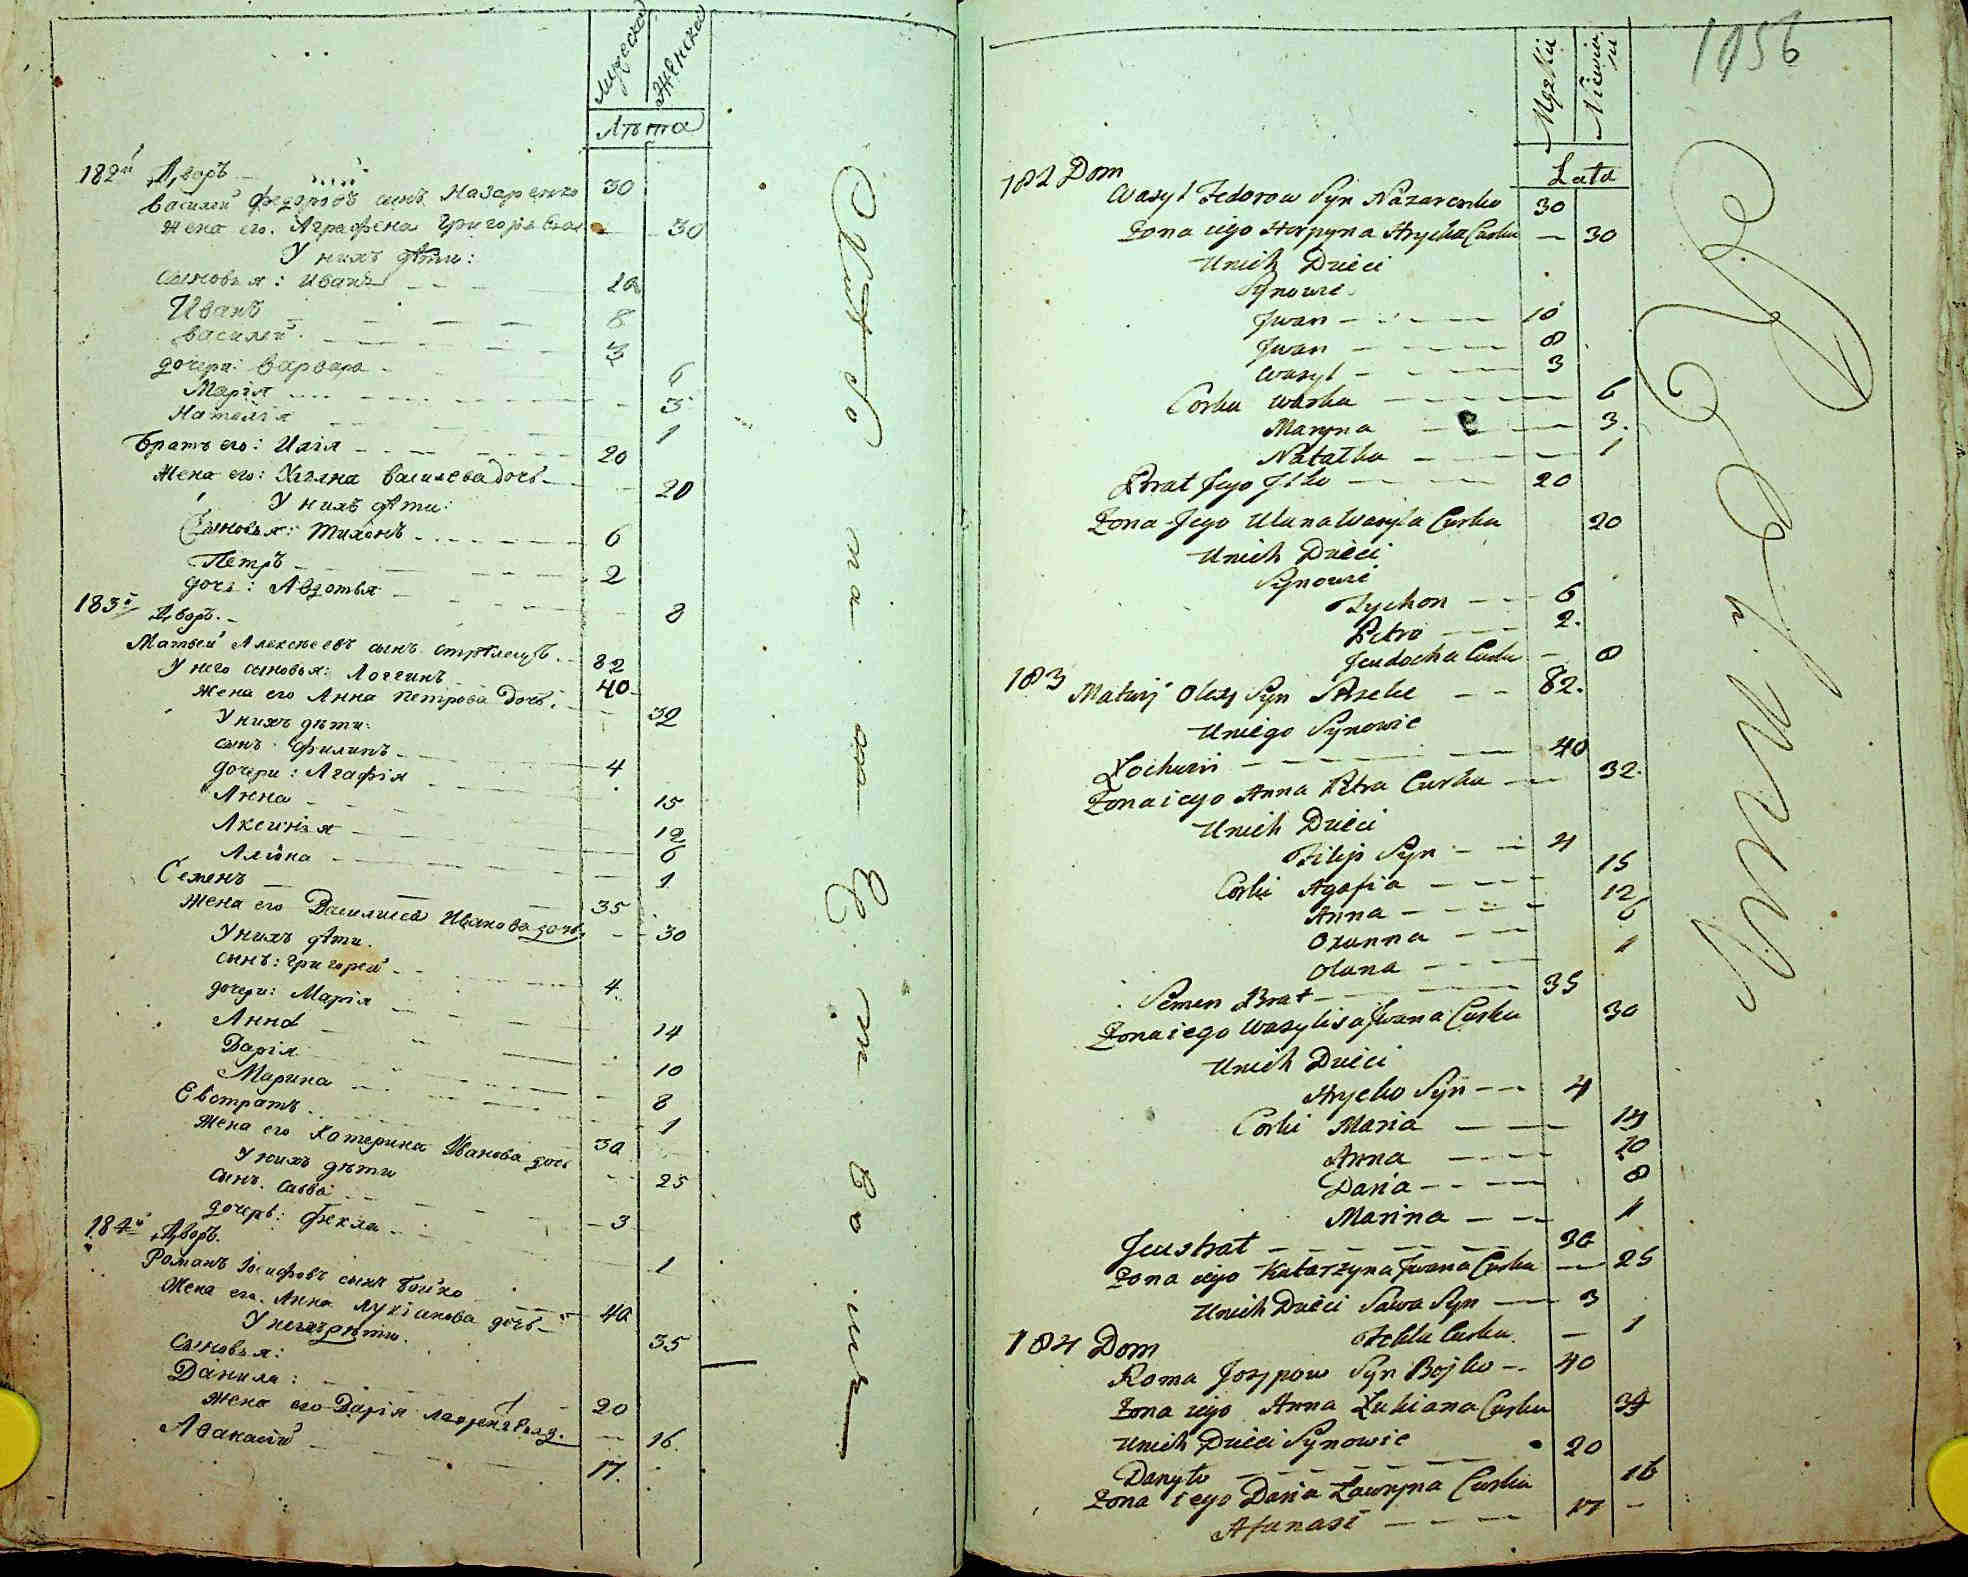 Мужеска
Женска
Лѣта
182й Дворъ
Василей Федоровъ сынъ Назаренко 30
Жена его Аграфена Григорьева 30
У нихъ дѣти:
Сыновья: Иванъ 10
Иванъ 8
Василей 3
дочери: Варвара 6
Марія 3
Наталія 1
Братъ его: Илія 20
Жена его: Уляна Василева дочь 20
У нихъ дѣти:
Сыновья: Тихонъ 6
Петръ 2
дочь: Авдотья 8
183й Дворъ
Матвей Алексѣевъ сынъ Стрѣлецъ 82
У него сыновья: Логгинъ 40
Жена его Анна Петрова дочь 32
У нихъ дѣти:
сынъ Филипъ 4
дочери: Агафія 15
Анна 12
Аксинія 6
Алена 1
Семенъ 35
Жена его Василиса Иванова дочь 30
У нихъ дѣти.
сынъ: Григорей 4
дочери: Марія 14
Анна 10
Дарія 8
Марина 1
Евстратъ 30
Жена его Катерина Иванова дочь 25
У нихъ дѣти
сынъ Савва 3
дочерь: Фекла 1
184й Дворъ.
Романъ Іосифовъ сынъ Бойко 40
Жена его Анна Лукіанова дочь 35
У нихъ дѣти.
Сыновья:
Данила: 20
Жена его Дарія 16
Афанасій 17.
1056
Męzkii
Lata
182 Dom
Wasyl Fedorow Syn Nazarenko 30
Żona iego Horpyna Hrycka Curka — 30
Unich Dzieci
Synowie
Jwan 10
Jwan 8
Wasyl 3
Corka Warka 6
Maryna 3.
Natalka 1
Brat Jego Jlko 20
Żona Jego Ulana Wasyla Curka 20
Unich Dzieci
Synowie
Tychon 6
Petro 2.
Jeudocha Curka — 8
183 Matwij Olexy Syn Strzelec 82.
Uniego Synowie
Łochwin 40
Żona iego Anna Petra Curka 32.
Unich Dzieci
Filip Syn 4
Corki Agafia 15
Anna 12
Oxanna 6
Olana 1
Semen Brat 35
Żona iego Wasylisa Jwana Curka 30
Unich Dzieci
Hrycko Syn 4
Corki Maria 14
Anna 10
Daria 8
Marina 1
Jeustrat 30
Żona iego Katarzyna Jwana Curka 25
Unich Dzieci Sawa Syn 3
Fekla Curka. — 1
184 Dom
Roma Jozypow Syn Bojko 40
Żona iego Anna Łukiana Curka
Unich Dzieci Synowie
Danyło 20
Żona iego Daria Ławryna Curka 16
Afanasi 17 —